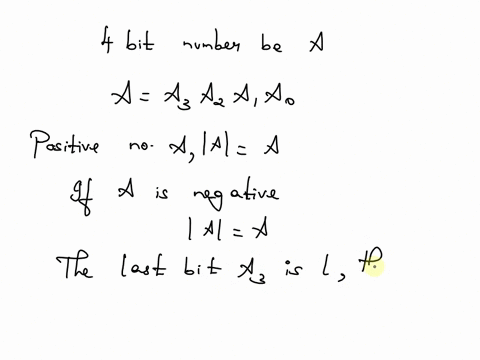 4 bit number be A
A = A₃ A₂ A₁ A₀
Positive no. A, |A| = A
If A is negative
|A| = A
The last bit A₃ is 1,